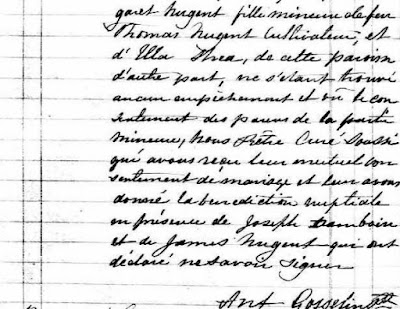 garet Nugent fille mineure de feu
Thomas Nugent Cultivateur, et
d'Ella Shea, de cette paroisse
d'autre part, ne s'étant trouvé
aucun empêchement et vû le con
sentement des parens de la partie
mineure, Nous Prêtre Curé Soussi
qui avons reçu leur mutuel con
sentement de mariage et leur avons
donné la bénédiction nuptiale
en présence de Joseph
et de James Nugent qui ont
déclaré ne savoir signer
Ant Gosselin Ptr